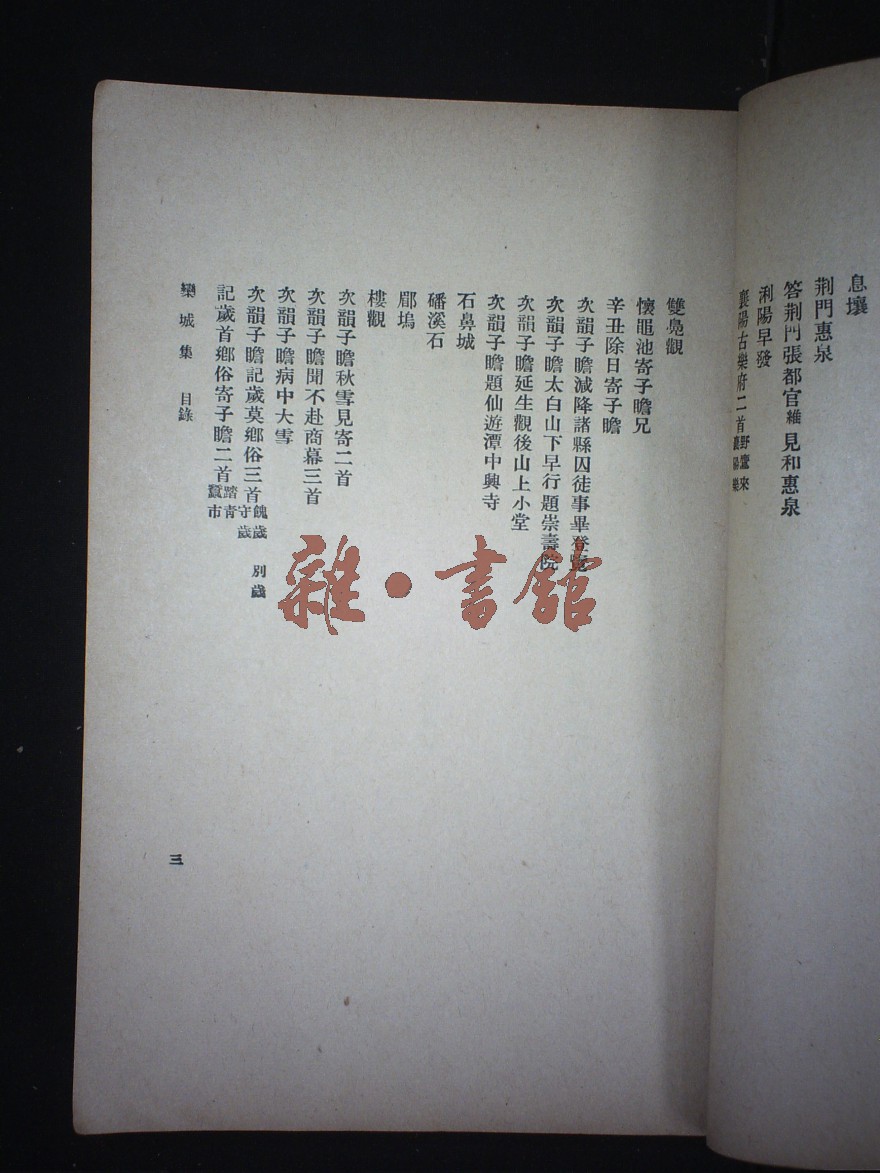 息壤
荆門惠泉
答荆門張都官維見和惠泉
浰陽早發
襄陽古樂府二首野鷹來 襄陽樂
雙鳧觀
懷黽池寄子瞻兄
辛丑除日寄子瞻
次韻子瞻減降諸縣囚徒事畢登覽
次韻子瞻太白山下早行題崇壽院
次韻子瞻延生觀後山上小堂
次韻子瞻題仙遊潭中興寺
石鼻城
磻溪石
郿塢
樓觀
次韻子瞻秋雪見寄二首
次韻子瞻聞不赴商幕三首
次韻子瞻病中大雪
次韻子瞻記歲莫鄉俗三首餽歲 別歲 守歲
記歲首鄉俗寄子瞻二首踏青 蠶市
欒城集 目錄
三
雜·書館